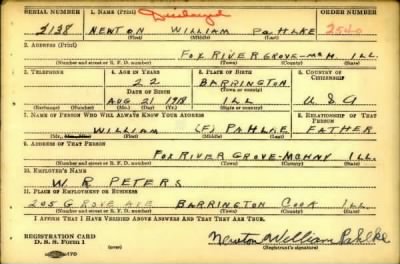 SERIAL NUMBER 1. NAME (Print) ORDER NUMBER
2138 NEWTON WILLIAM PAHLKE 2540
(First) (Middle) (Last)
2. ADDRESS (Print)
FOX RIVER GROVE-MCH ILL.
(Number and street or R. F. D. number) (Town) (County) (State)
3. TELEPHONE 4. AGE IN YEARS 5. PLACE OF BIRTH 6. COUNTRY OF CITIZENSHIP
22 BARRINGTON
DATE OF BIRTH (Town or county)
AUG 21 1918 ILL U.S.A
(Exchange) (Number) (Mo.) (Day) (Yr.) (State or country)
7. NAME OF PERSON WHO WILL ALWAYS KNOW YOUR ADDRESS 8. RELATIONSHIP OF THAT PERSON
WILLIAM (F) PAHLKE FATHER
(First) (Middle) (Last)
9. ADDRESS OF THAT PERSON
FOX RIVER GROVE-MCHNY ILL.
(Number and street or R. F. D. number) (Town) (County) (State)
10. EMPLOYER'S NAME
W. R. PETERS
11. PLACE OF EMPLOYMENT OR BUSINESS
205 GROVE AVE BARRINGTON COOK ILL
(Number and street or R. F. D. number) (Town) (County) (State)
I AFFIRM THAT I HAVE VERIFIED ABOVE ANSWERS AND THAT THEY ARE TRUE.
REGISTRATION CARD
D. S. S. Form 1 Newton William Pahlke
(Registrant's signature)